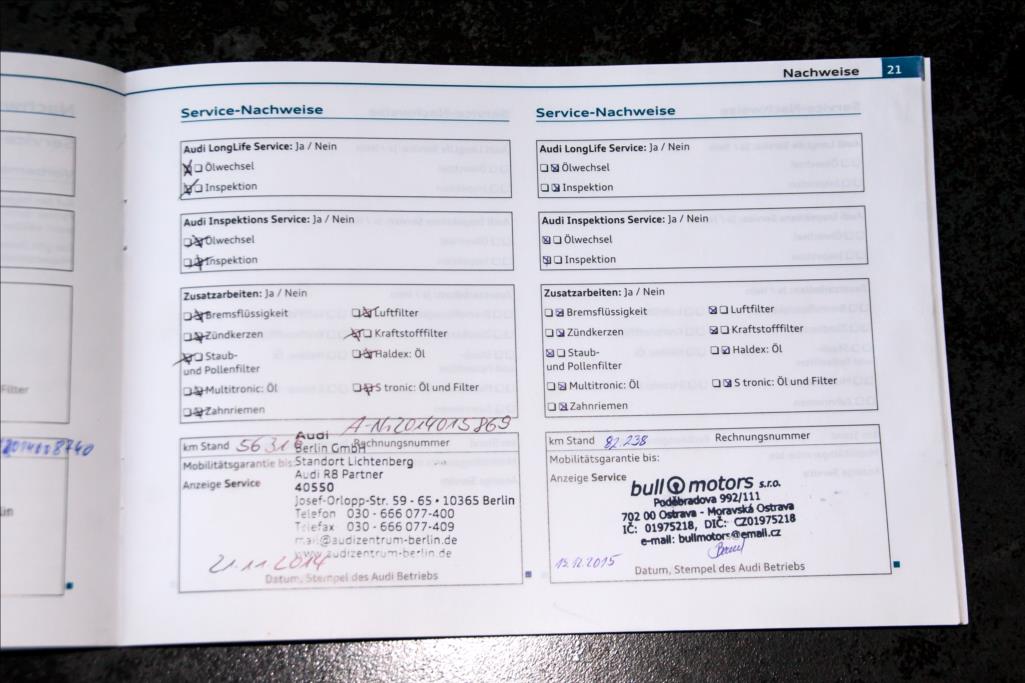 Nachweise 21
Service-Nachweise
Audi LongLife Service: Ja / Nein
Ölwechsel
Inspektion
Audi Inspektions Service: Ja / Nein
Ölwechsel
Inspektion
Zusatzarbeiten: Ja / Nein
Bremsflüssigkeit Luftfilter
Zündkerzen Kraftstofffilter
Staub- Haldex: Öl
und Pollenfilter
Multitronic: Öl S tronic: Öl und Filter
Zahnriemen
A-Nr 2014015869
km Stand Rechnungsnummer
Audi
Berlin GmbH
Mobilitätsgarantie bis:
Standort Lichtenberg
Anzeige Service
Audi R8 Partner
40550
Josef-Orlopp-Str. 59 - 65 • 10365 Berlin
Telefon 030 - 666 077-400
Telefax 030 - 666 077-409
mail@audizentrum-berlin.de
www.audizentrum-berlin.de
21.11.2014
Datum, Stempel des Audi Betriebs
Service-Nachweise
Audi LongLife Service: Ja / Nein
Ölwechsel
Inspektion
Audi Inspektions Service: Ja / Nein
Ölwechsel
Inspektion
Zusatzarbeiten: Ja / Nein
Bremsflüssigkeit Luftfilter
Zündkerzen Kraftstofffilter
Staub- Haldex: Öl
und Pollenfilter
Multitronic: Öl S tronic: Öl und Filter
Zahnriemen
km Stand 82.238 Rechnungsnummer
Mobilitätsgarantie bis:
Anzeige Service
bull motors s.r.o.
Poděbradova 992/111
702 00 Ostrava - Moravská Ostrava
IČ: 01975218, DIČ: CZ01975218
e-mail: bullmotors@email.cz
15.12.2015
Datum, Stempel des Audi Betriebs
Filter